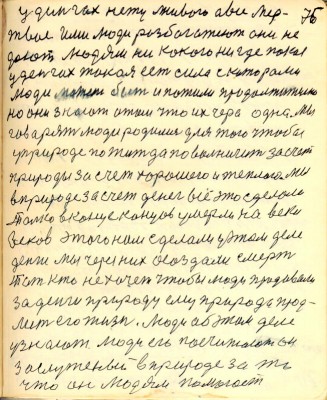 у денгах нету живого а все мер- 75
твое Или люди розбогатеют они не
довают людям ни кокого нигде покоя
у денгах токая ест сила с которами
люди может быт и пожили продолжително
но они знают о том что их чера одна. Мы
говарят люди родилис для того чтобы
у природе по
природы за счет хорошего и теплого мы
в природе за счет денег всё это сделали
толко в конце концов умерли на веки
веков этого нам сделали у этом деле
денги мы через них создали смерт
Тот кто не хочет чтобы люди продавали
за денги природу ему природа прод-
лит его жизн. Люди об этом деле
узнают Люди его посчитают он
заслуженый в природе за то
что он людям помогает